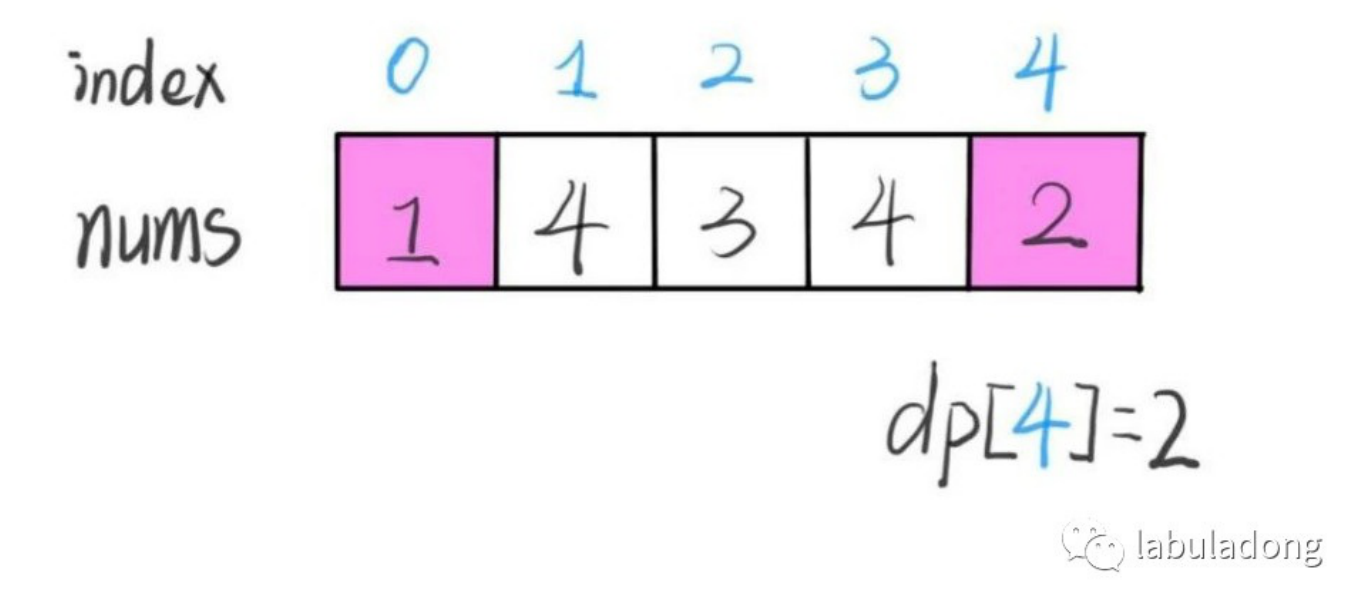 index 0 1 2 3 4
nums 1 4 3 4 2
dp[4]=2
labuladong